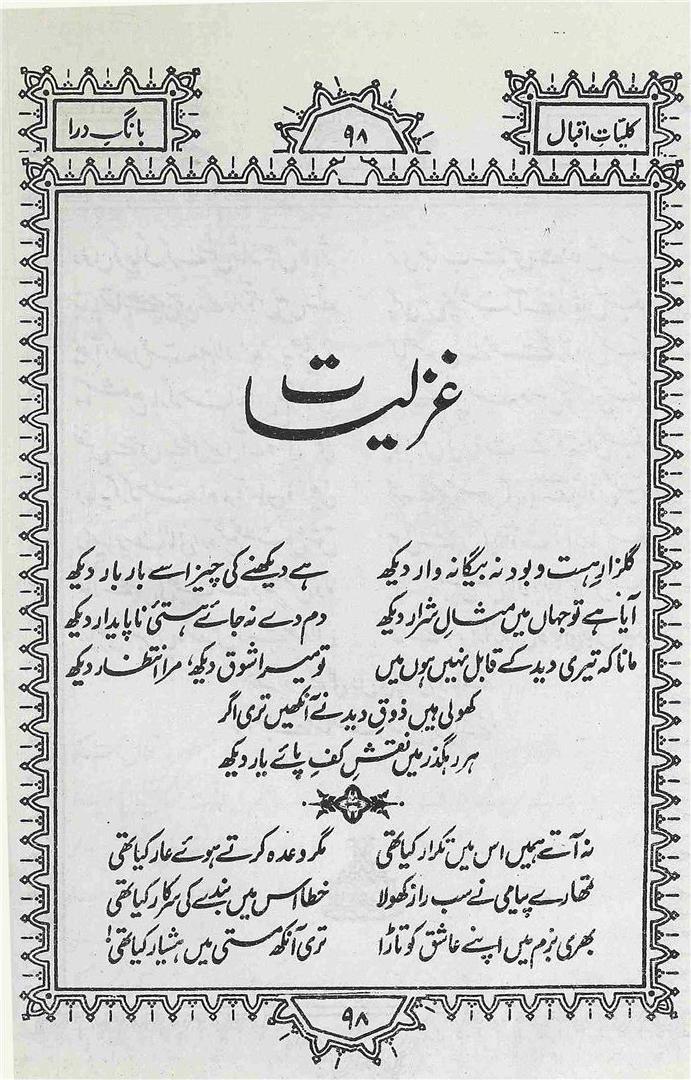 کلیاتِ اقبال ۹۸ بانگِ درا
غزلیات
گلزارِ ہست و بود نہ بیگانہ وار دیکھ ہے دیکھنے کی چیز اسے بار بار دیکھ
آیا ہے تو جہاں میں مثالِ شرار دیکھ دم دے نہ جائے ہستیٔ ناپایدار دیکھ
مانا کہ تیری دید کے قابل نہیں ہوں میں تو میرا شوق دیکھ، مرا انتظار دیکھ
کھولی ہیں ذوقِ دید نے آنکھیں تری اگر
ہر رہگذر میں نقشِ کفِ پائے یار دیکھ
نہ آتے ہمیں اس میں تکرار کیا تھی مگر وعدہ کرتے ہوئے عار کیا تھی
تمھارے پیامی نے سب راز کھولا خطا اس میں بندے کی سرکار کیا تھی
بھری بزم میں اپنے عاشق کو تاڑا تری آنکھ مستی میں ہشیار کیا تھی!
۹۸